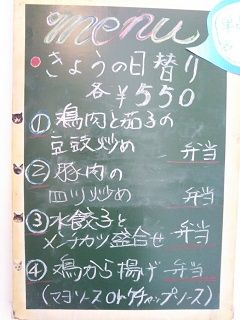 menu
きょうの日替り
各¥550
① 鶏肉と茄子の
豆豉炒め 弁当
② 豚肉の
四川炒め 弁当
③ 水餃子と
メンチカツ盛合せ 弁当
④ 鶏から揚げ 弁当
(マヨソースorケチャップソース)